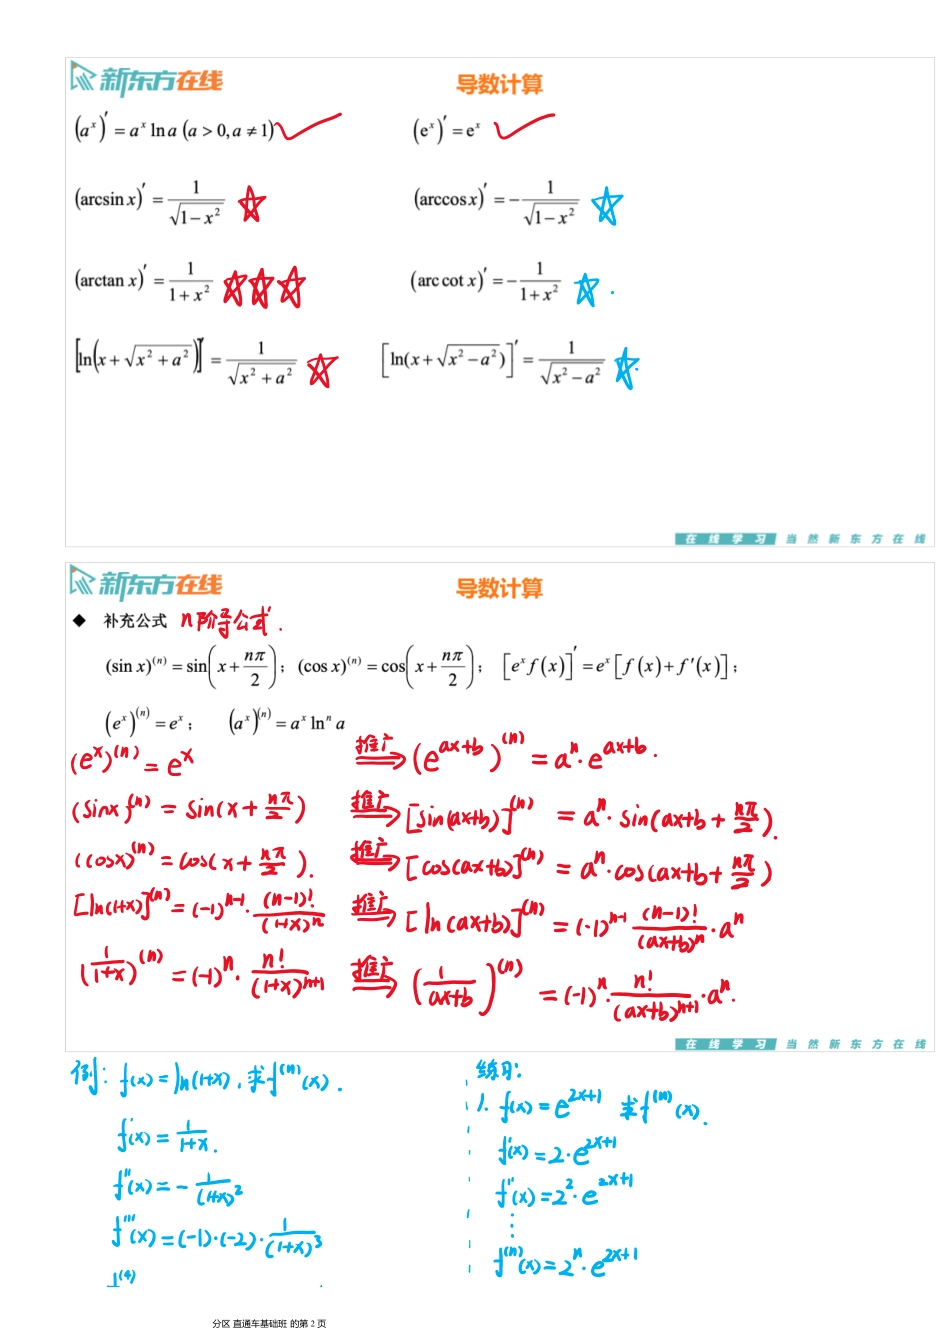 新东方在线
导数计算
(a^x)' = a^x ln a (a > 0, a ≠ 1) (e^x)' = e^x
(arcsin x)' = 1/√(1−x²) (arccos x)' = −1/√(1−x²)
(arctan x)' = 1/(1+x²) (arc cot x)' = −1/(1+x²)
[ln(x+√(x²+a²))]' = 1/√(x²+a²) [ln(x+√(x²−a²))]' = 1/√(x²−a²)
在线学习 当然新东方在线
新东方在线
导数计算
◆ 补充公式 n阶导公式.
(sin x)^(n) = sin(x+nπ/2); (cos x)^(n) = cos(x+nπ/2); [e^x f(x)]' = e^x[f(x)+f'(x)];
(e^x)^(n) = e^x; (a^x)^(n) = a^x ln^n a
(e^x)^(n) = e^x 推广⟹ (e^(ax+b))^(n) = a^n·e^(ax+b).
(sinx)^(n) = sin(x+nπ/2) 推广⟹ [sin(ax+b)]^(n) = a^n·sin(ax+b+nπ/2).
(cosx)^(n) = cos(x+nπ/2). 推广⟹ [cos(ax+b)]^(n) = a^n·cos(ax+b+nπ/2)
[ln(1+x)]^(n) = (-1)^(n-1)·(n-1)!/(1+x)^n 推广⟹ [ln(ax+b)]^(n) = (-1)^(n-1) (n-1)!/(ax+b)^n·a^n
(1/(1+x))^(n) = (-1)^n·n!/(1+x)^(n+1) 推广⟹ (1/(ax+b))^(n) = (-1)^n·n!/(ax+b)^(n+1)·a^n.
在线学习 当然新东方在线
例: f(x)=ln(1+x), 求f^(n)(x).
f'(x)=1/(1+x).
f''(x)=-1/(1+x)^2
f'''(x)=(-1)·(-2)·1/(1+x)^3
f^(4)
练习:
1. f(x)=e^(2x+1) 求f^(n)(x).
f'(x)=2·e^(2x+1)
f''(x)=2^2·e^(2x+1)
⋮
f^(n)(x)=2^n·e^(2x+1)
分区 直通车基础班 的第 2 页